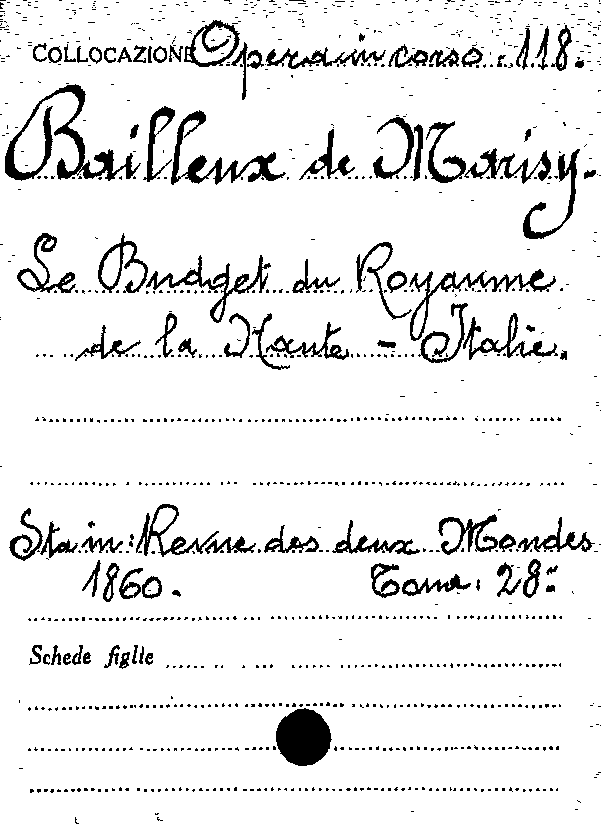 COLLOCAZIONE Opera in corso. 118.
Bailleux de Marisy.
Le Budget du Royaume
de la Haute - Italie.
Sta in: Revue des deux Mondes
1860. Tome. 28:
Schede figlie